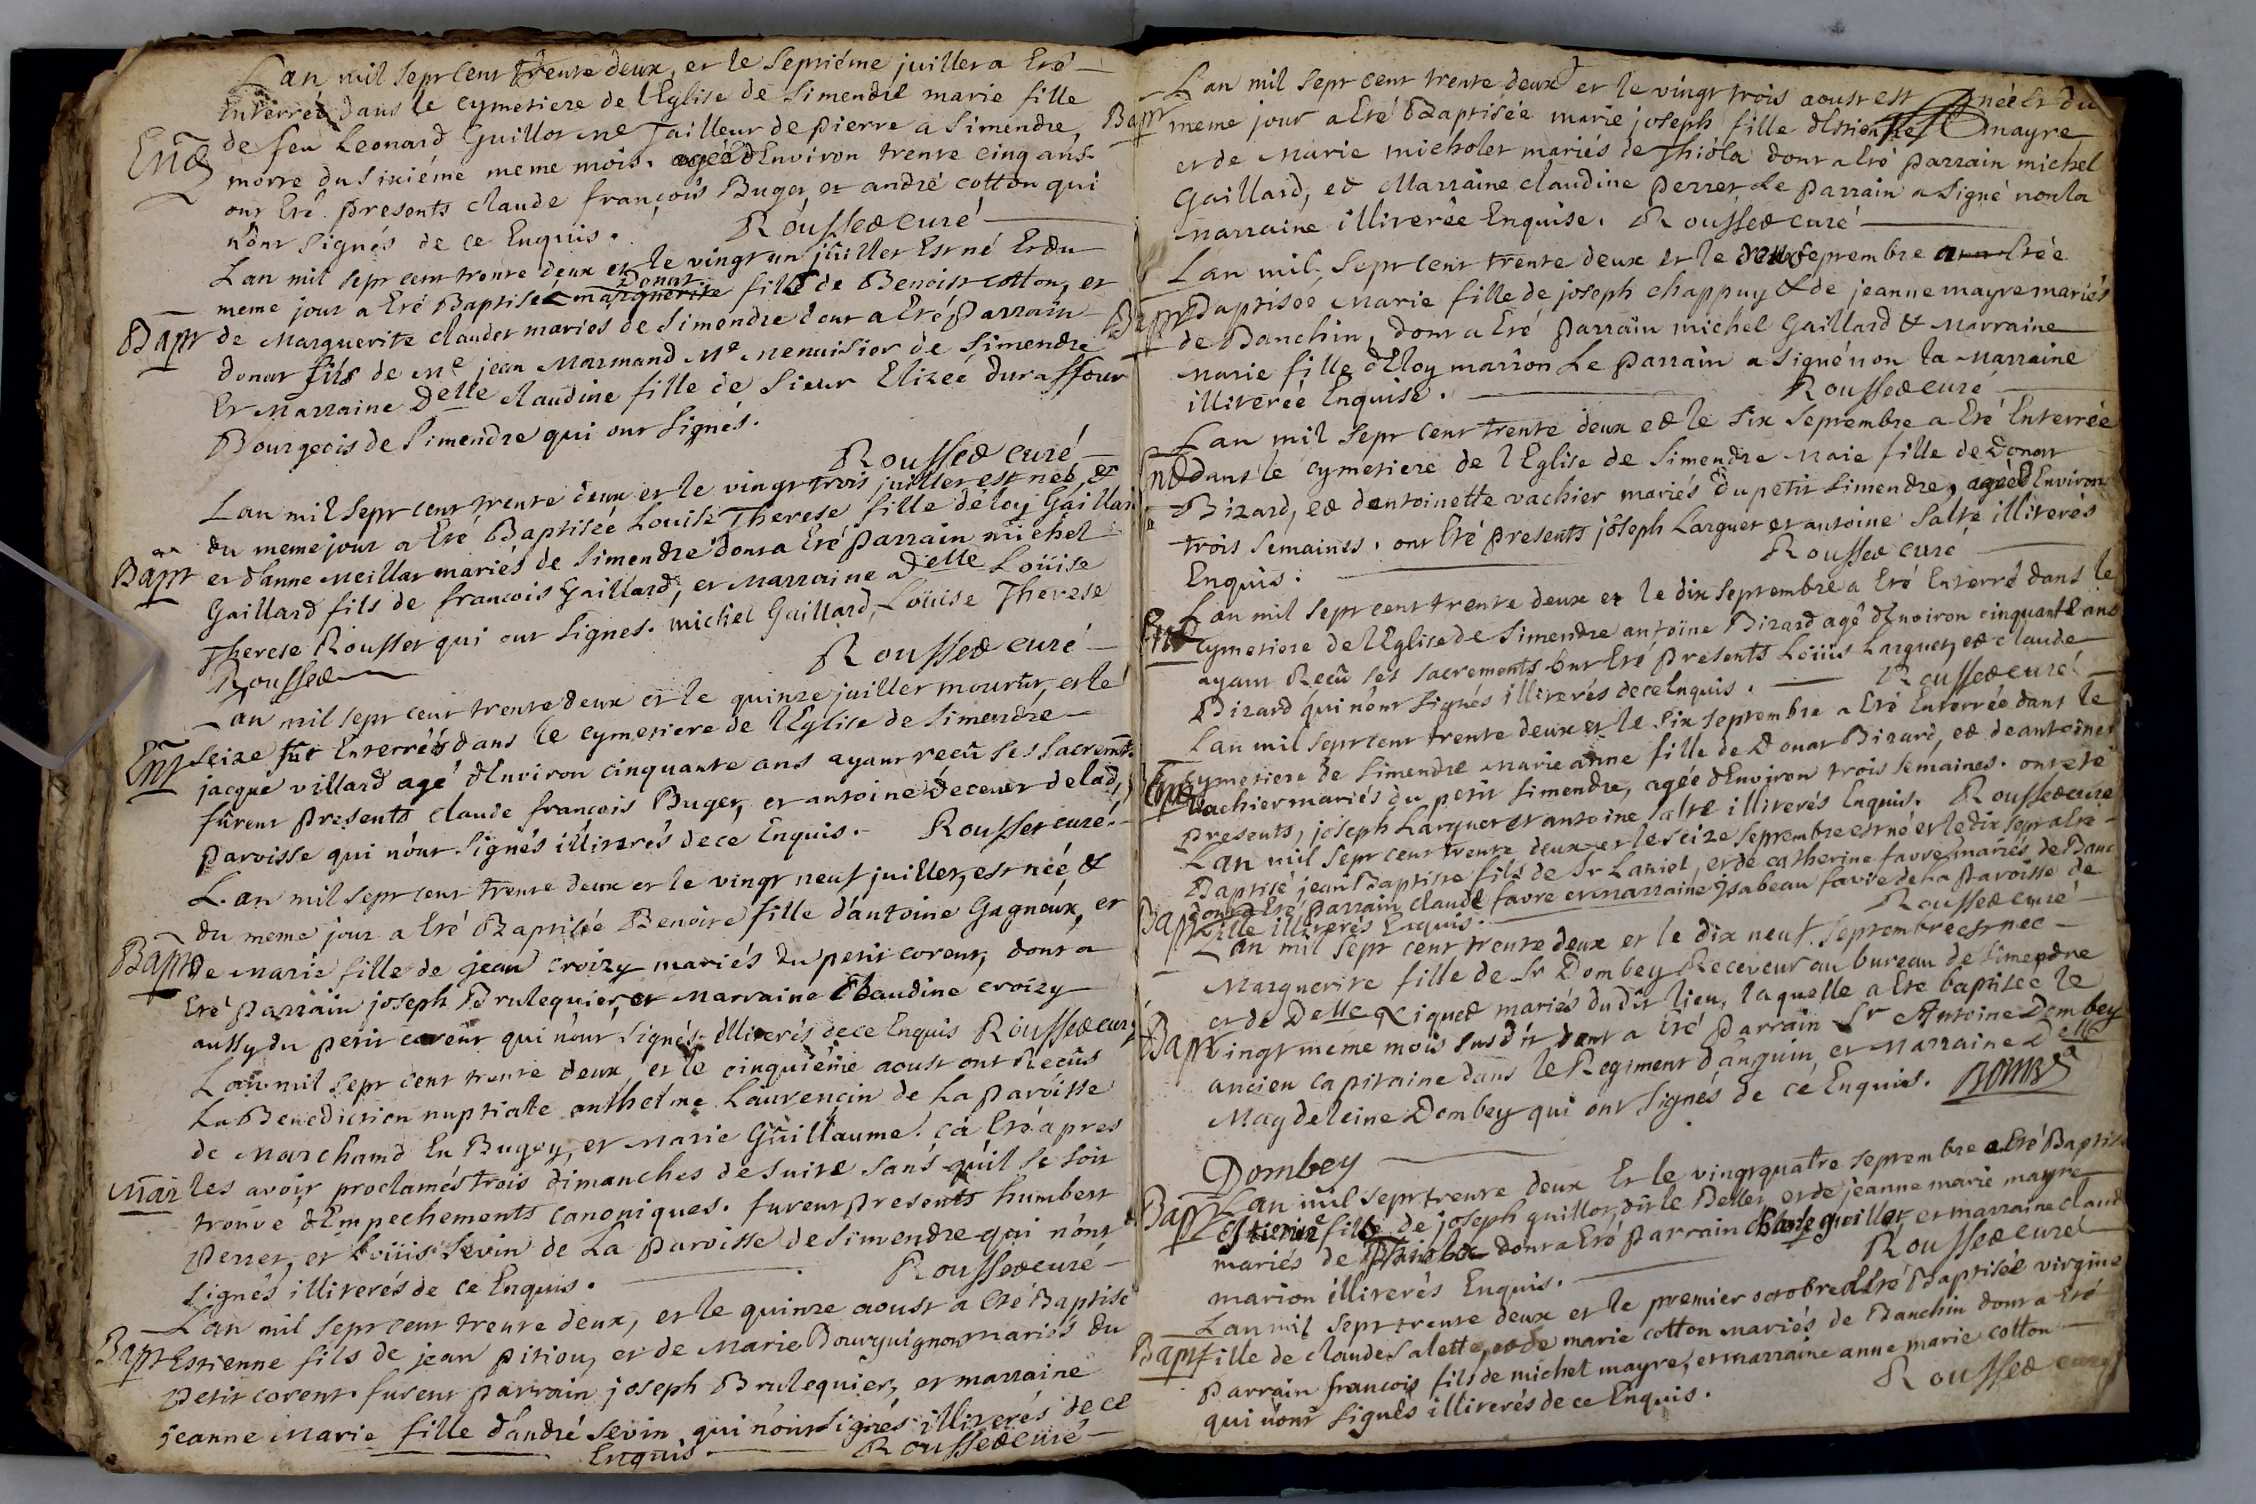 Lan mil sept cent trente deux, et le septiéme juillet a Eté
Enterreé dans le cymetiere de l'Eglise de Simendre marie fille
Ent de feu Leonard Guillot Me Tailleur de pierre a Simendre,
morte du sixiéme meme mois. ageé dEnviron trente cinq ans.
ont Eté presents claude françois Buget, et andré cotton qui
n'ont signés de ce Enquis. Rousset curé
Lan mil sept cent trente deux et le vingt un juillet Est né Et du
Donat
meme jour a Eté Baptisé marguerite fils de Benoist cotton, et
Bapt de Marguerite claudet mariés de Simendre dont a Eté Parrain
donat fils de Me jean Marmand Me Menuisier de Simendre
Et Marraine Delle claudine fille de Sieur Elizeé durassour
Bourgeois de Simendre qui ont signés.
Rousset curé
Lan mil sept cent trente deux et le vingt trois juillet est neé, et
du meme jour a Eté Baptiseé Louise Therese fille déloy Gaillard
Bapt et d'anne Meillat mariés de Simendre dont a Eté Parrain michel
Gaillard fils de francois Gaillard, et Marraine Delle Loüise
Therese Rousset qui ont signes. michel Gaillard, Loüise Therese
Rousset Rousset curé
Lan mil sept cent trente deux et le quinze juillet mourut, et le
Ent seize fut Enterré dans le cymetiere de l'Eglise de Simendre
jacque villard agé dEnviron cinquante ans ayant recû ses sacremts
fûrent presents claude francois Buget, et antoine decenet de lad,
paroisse qui n'ont signés illiterés de ce Enquis. Rousset curé.
Lan mil sept cent trente deux et le vingt neuf juillet, est née, et
du meme jour a Eté Baptiseé Benoite fille d'antoine Gagneux, et
Bapt de Marie fille de jean croizy mariés du petit corent, dont a
Eté Parrain joseph Brulequier, et Marraine Claudine croizy
aussy du petit corent qui n'ont signés illiterés de ce Enquis Rousset curé
Lan mil sept cent trente deux et le cinquiéme aoust ont Recûs
La Benediction nuptialle anthelme Laurencin de La Paroisse
de Marchamd En Bugey, et Marie Guillaume. ça Eté apres
Mar les avoir proclamés trois dimanches de suite sans quil se soit
trouvé dEmpechements canoniques. furent presents humbert
Perret, et Loüis Sevin de La paroisse de Simendre qui n'ont
signés illiterés de ce Enquis. Rousset curé
Lan mil sept cent trente deux, et le quinze aoust a Eté Baptisé
Bapt Estienne fils de jean pitiou, et de Marie Bourguignon mariés du
petit corent. furent parrain joseph Brulequier, et marraine
jeanne Marie fille d'andré Sevin qui n'ont signés illiterés de ce
Enquis. Rousset curé
Lan mil sept cent trente deux et le vingt trois aoust est née Et du
Bapt meme jour a Eté Baptisée marie joseph fille dEstienne mayre
et de Marie micholet mariés de Thiola dont a Eté parrain michel
Gaillard, et Marraine claudine perret Le parrain a signé non la
marraine illiterée Enquise. Rousset curé
Lan mil sept cent trente deux et le deux septembre a Etée
Bapt Baptisée Marie fille de joseph chappuy & de jeanne mayre mariés
de Banchin, dont a Eté parrain michel Gaillard & Marraine
marie fille dEloy marion Le parrain a signé non la Marraine
illiterée Enquise. Rousset curé
Lan mil sept cent trente deux et le six septembre a Eté Enterrée
Ent dans le cymetiere de l'Eglise de Simendre Maie fille de Donat
Bizard, et dantoinette vachier mariés du petit Simendre, ageé dEnviron
trois semaines. ont Eté presents joseph Larguet et antoine Salte illiterés
Enquis. Rousset curé
Lan mil sept cent trente deux et le dix septembre a Eté Enterré dans le
Ent cymetiere de l'Eglise de Simendre antoine Bizard agé dEnviron cinquante ans
ayant Recû ses sacrements ont Eté presents Loüis Larguet, et claude
Bizard qui n'ont signés illiterés de ce Enquis. Rousset curé
Lan mil sept cent trente deux et le six septembre a Eté Enterrée dans le
cymetiere de Simendre Marie anne fille de Donat Bizard, et de antoinet
vachier mariés du petit Simendre, agée dEnviron trois semaines. ont eté
presents, joseph Larguet et antoine Salte illiterés Enquis. Rousset curé
Lan mil sept cent trente deux et le seize septembre est né et le dix sept a Eté
Baptisé jean Baptiste fils de Sr Laniel, et de catherine favre mariés de Banc
Bapt dont a Eté parrain claude favre et marraine Isabeau favre de La paroisse de
ville illiterés Enquis. Rousset curé
Lan mil sept cent trente deux et le dix neuf septembre est neé
Marguerite fille de Sr Dombey Receveur au bureau de Simendre
et de Delle Liquet mariés du dit lieu, laquelle a Ete baptiseé le
Bapt vingt meme mois susdit dont a Eté Parrain Sr Antoine Dombey
ancien capitaine dans le Regiment d'anguin, et Marraine Delle
Magdeleine Dombey qui ont signés de ce Enquis.
Dombey
Lan mil sept trente deux Et le vingt quatre septembre a Eté Baptisé
Bapt Estienne fils de joseph guillot, dit le Bellet, et de jeanne marie mayre
mariés de Thiola dont a Eté Parrain claude guillot, et marraine claud
marion illiterés Enquis. Rousset curé
Lan mil sept trente deux et le premier octobre a Eté Baptisée virginie
Bapt fille de claude Salette, et de marie cotton mariés de Banchin dont a Eté
parrain francois fils de michel mayre, et marraine anne marie cotton
qui n'ont signés illiterés de ce Enquis. Rousset curé